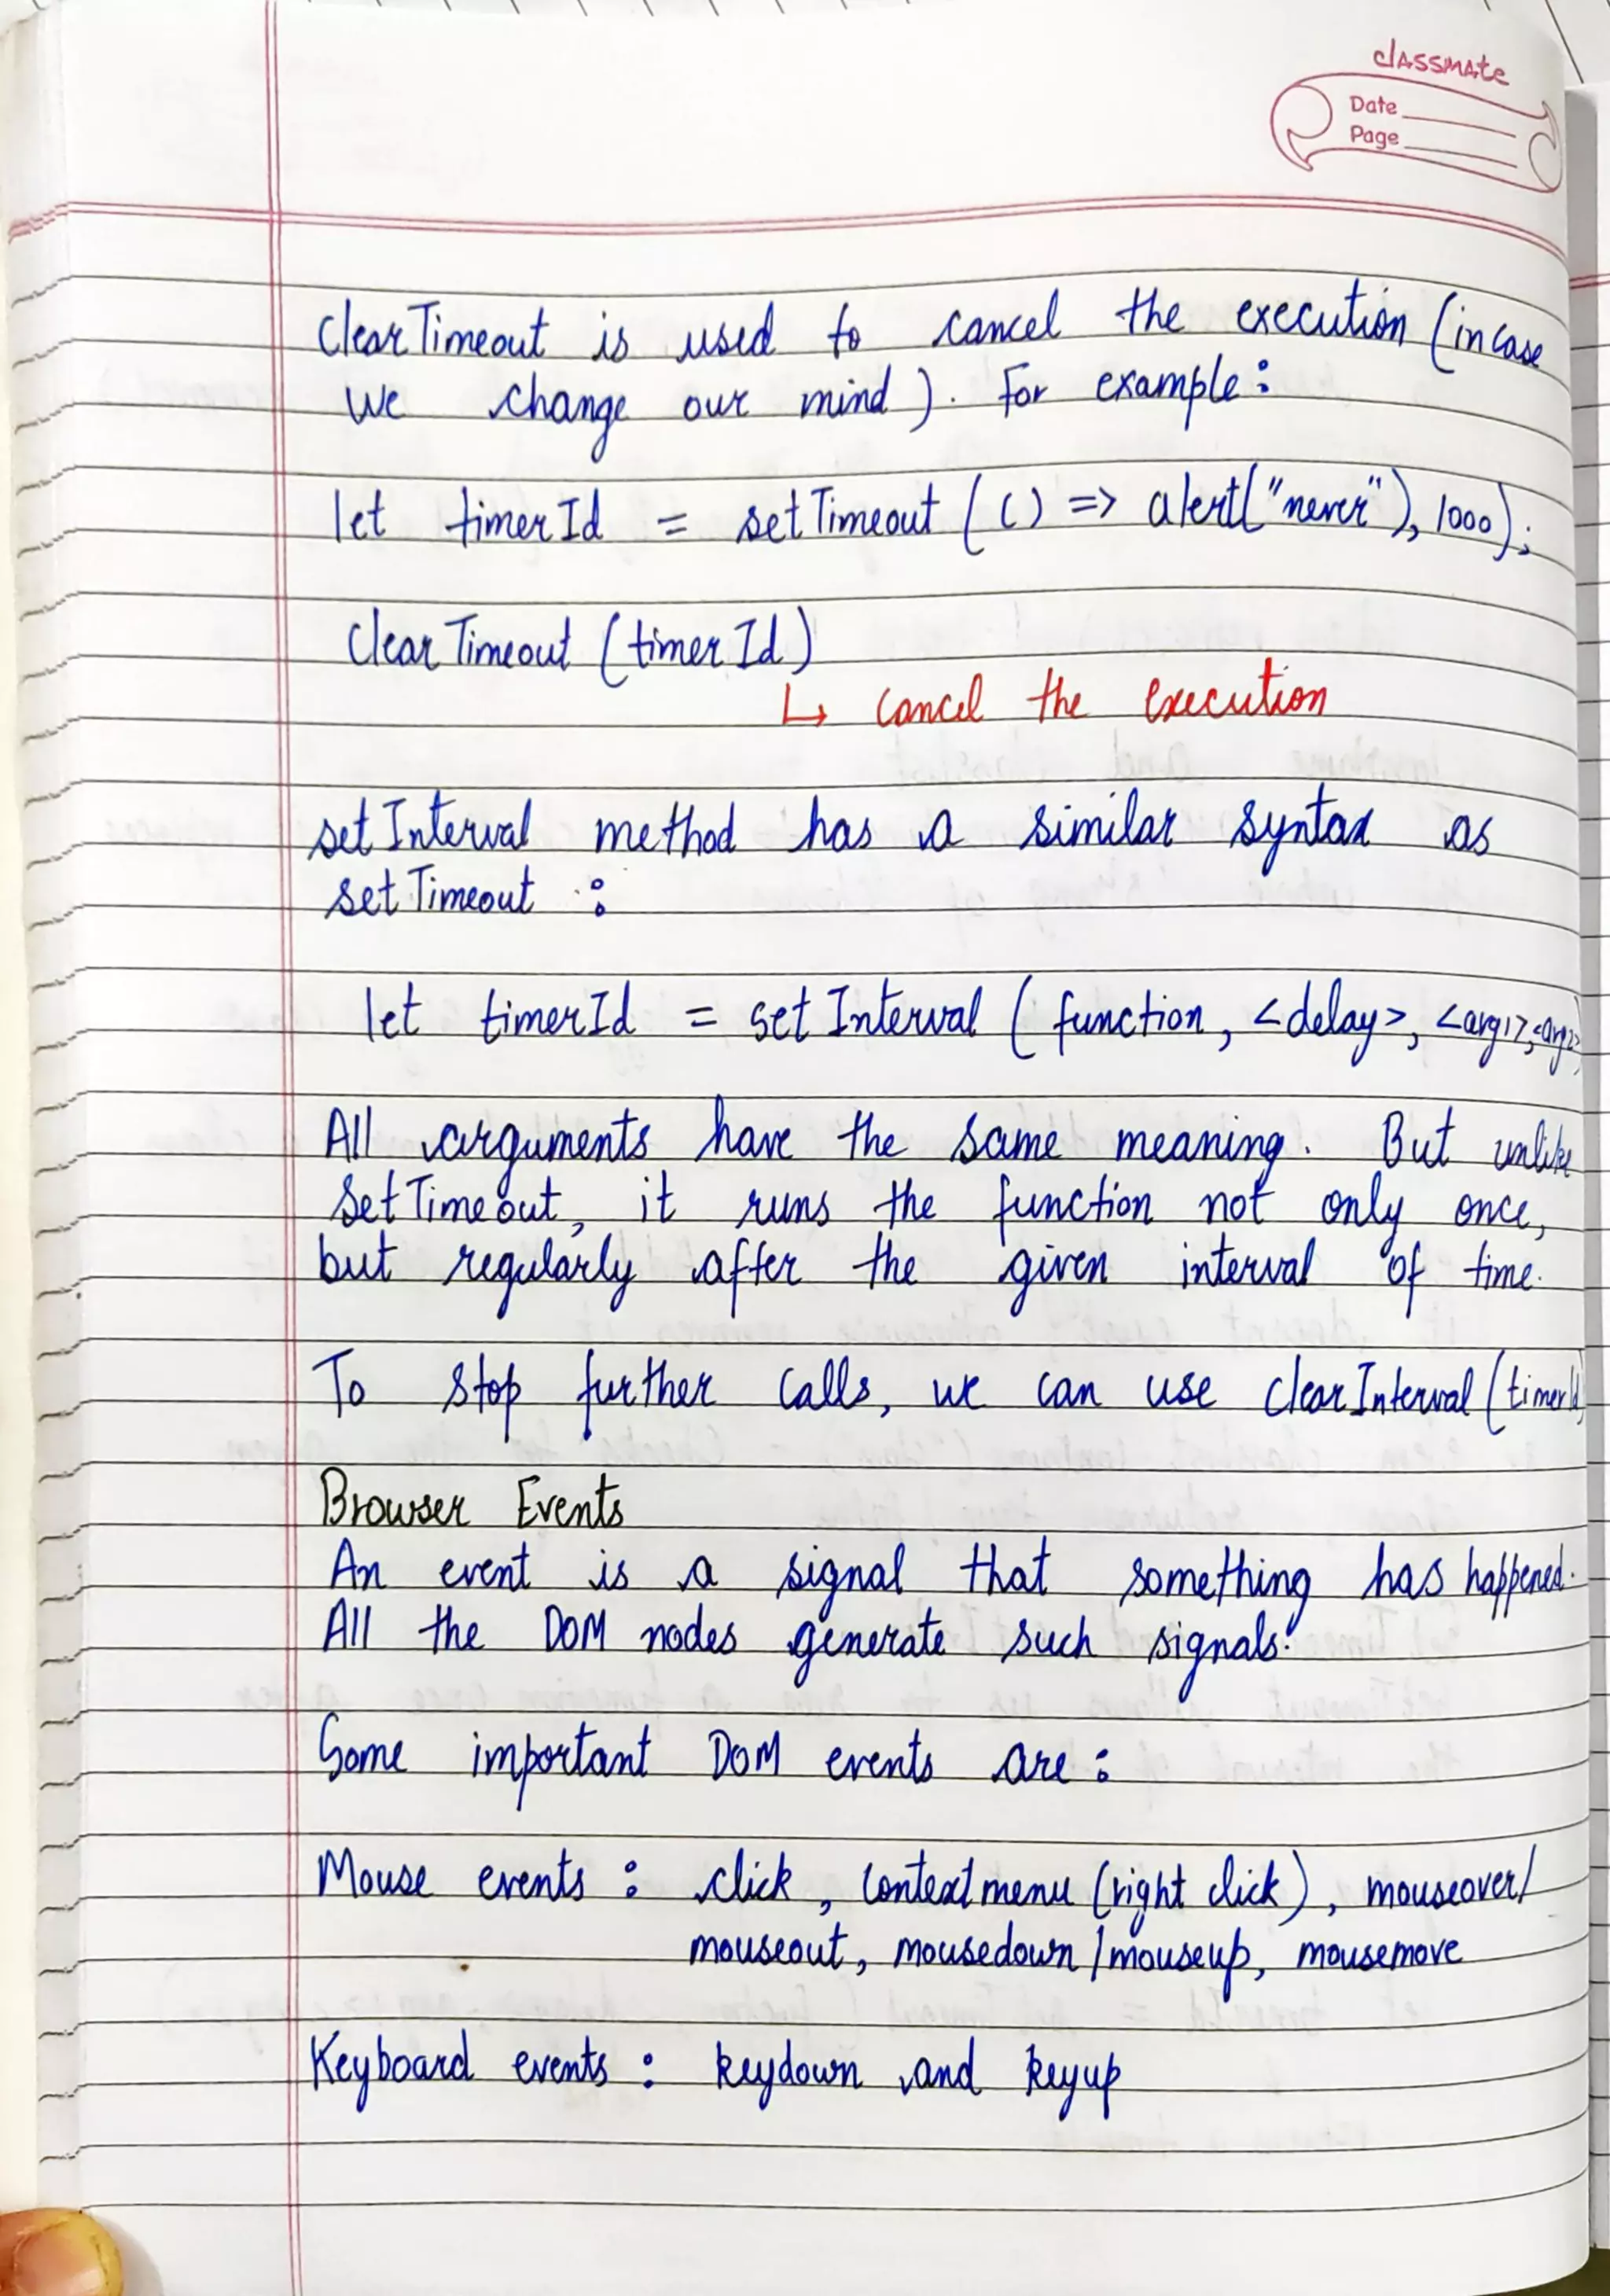 classmate
Date
Page
clearTimeout is used to cancel the execution (in case
we change our mind). For example:
let timerId = setTimeout (() => alert("never"), 1000);
clearTimeout (timerId)
↳ cancel the execution
setInterval method has a similar syntax as
setTimeout :
let timerId = setInterval ( function, <delay>, <arg1>, <arg2>
All arguments have the same meaning. But unlike
setTimeout, it runs the function not only once,
but regularly after the given interval of time.
To stop further calls, we can use clearInterval (timerId)
Browser Events
An event is a signal that something has happened.
All the DOM nodes generate such signals.
Some important DOM events are :
Mouse events : click, contextmenu (right click), mouseover/
mouseout, mousedown / mouseup, mousemove
Keyboard events : keydown and keyup